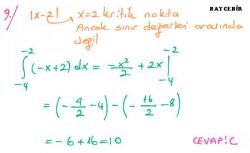 BAYCEBİR
9.) |x-2| x=2 kritik nokta
Ancak sınır değerleri arasında
değil
∫_{-4}^{-2} (-x+2) dx = -x²/2 + 2x |_{-4}^{-2}
= (-4/2 - 4) - (-16/2 - 8)
= -6 + 16 = 10
CEVAP: C